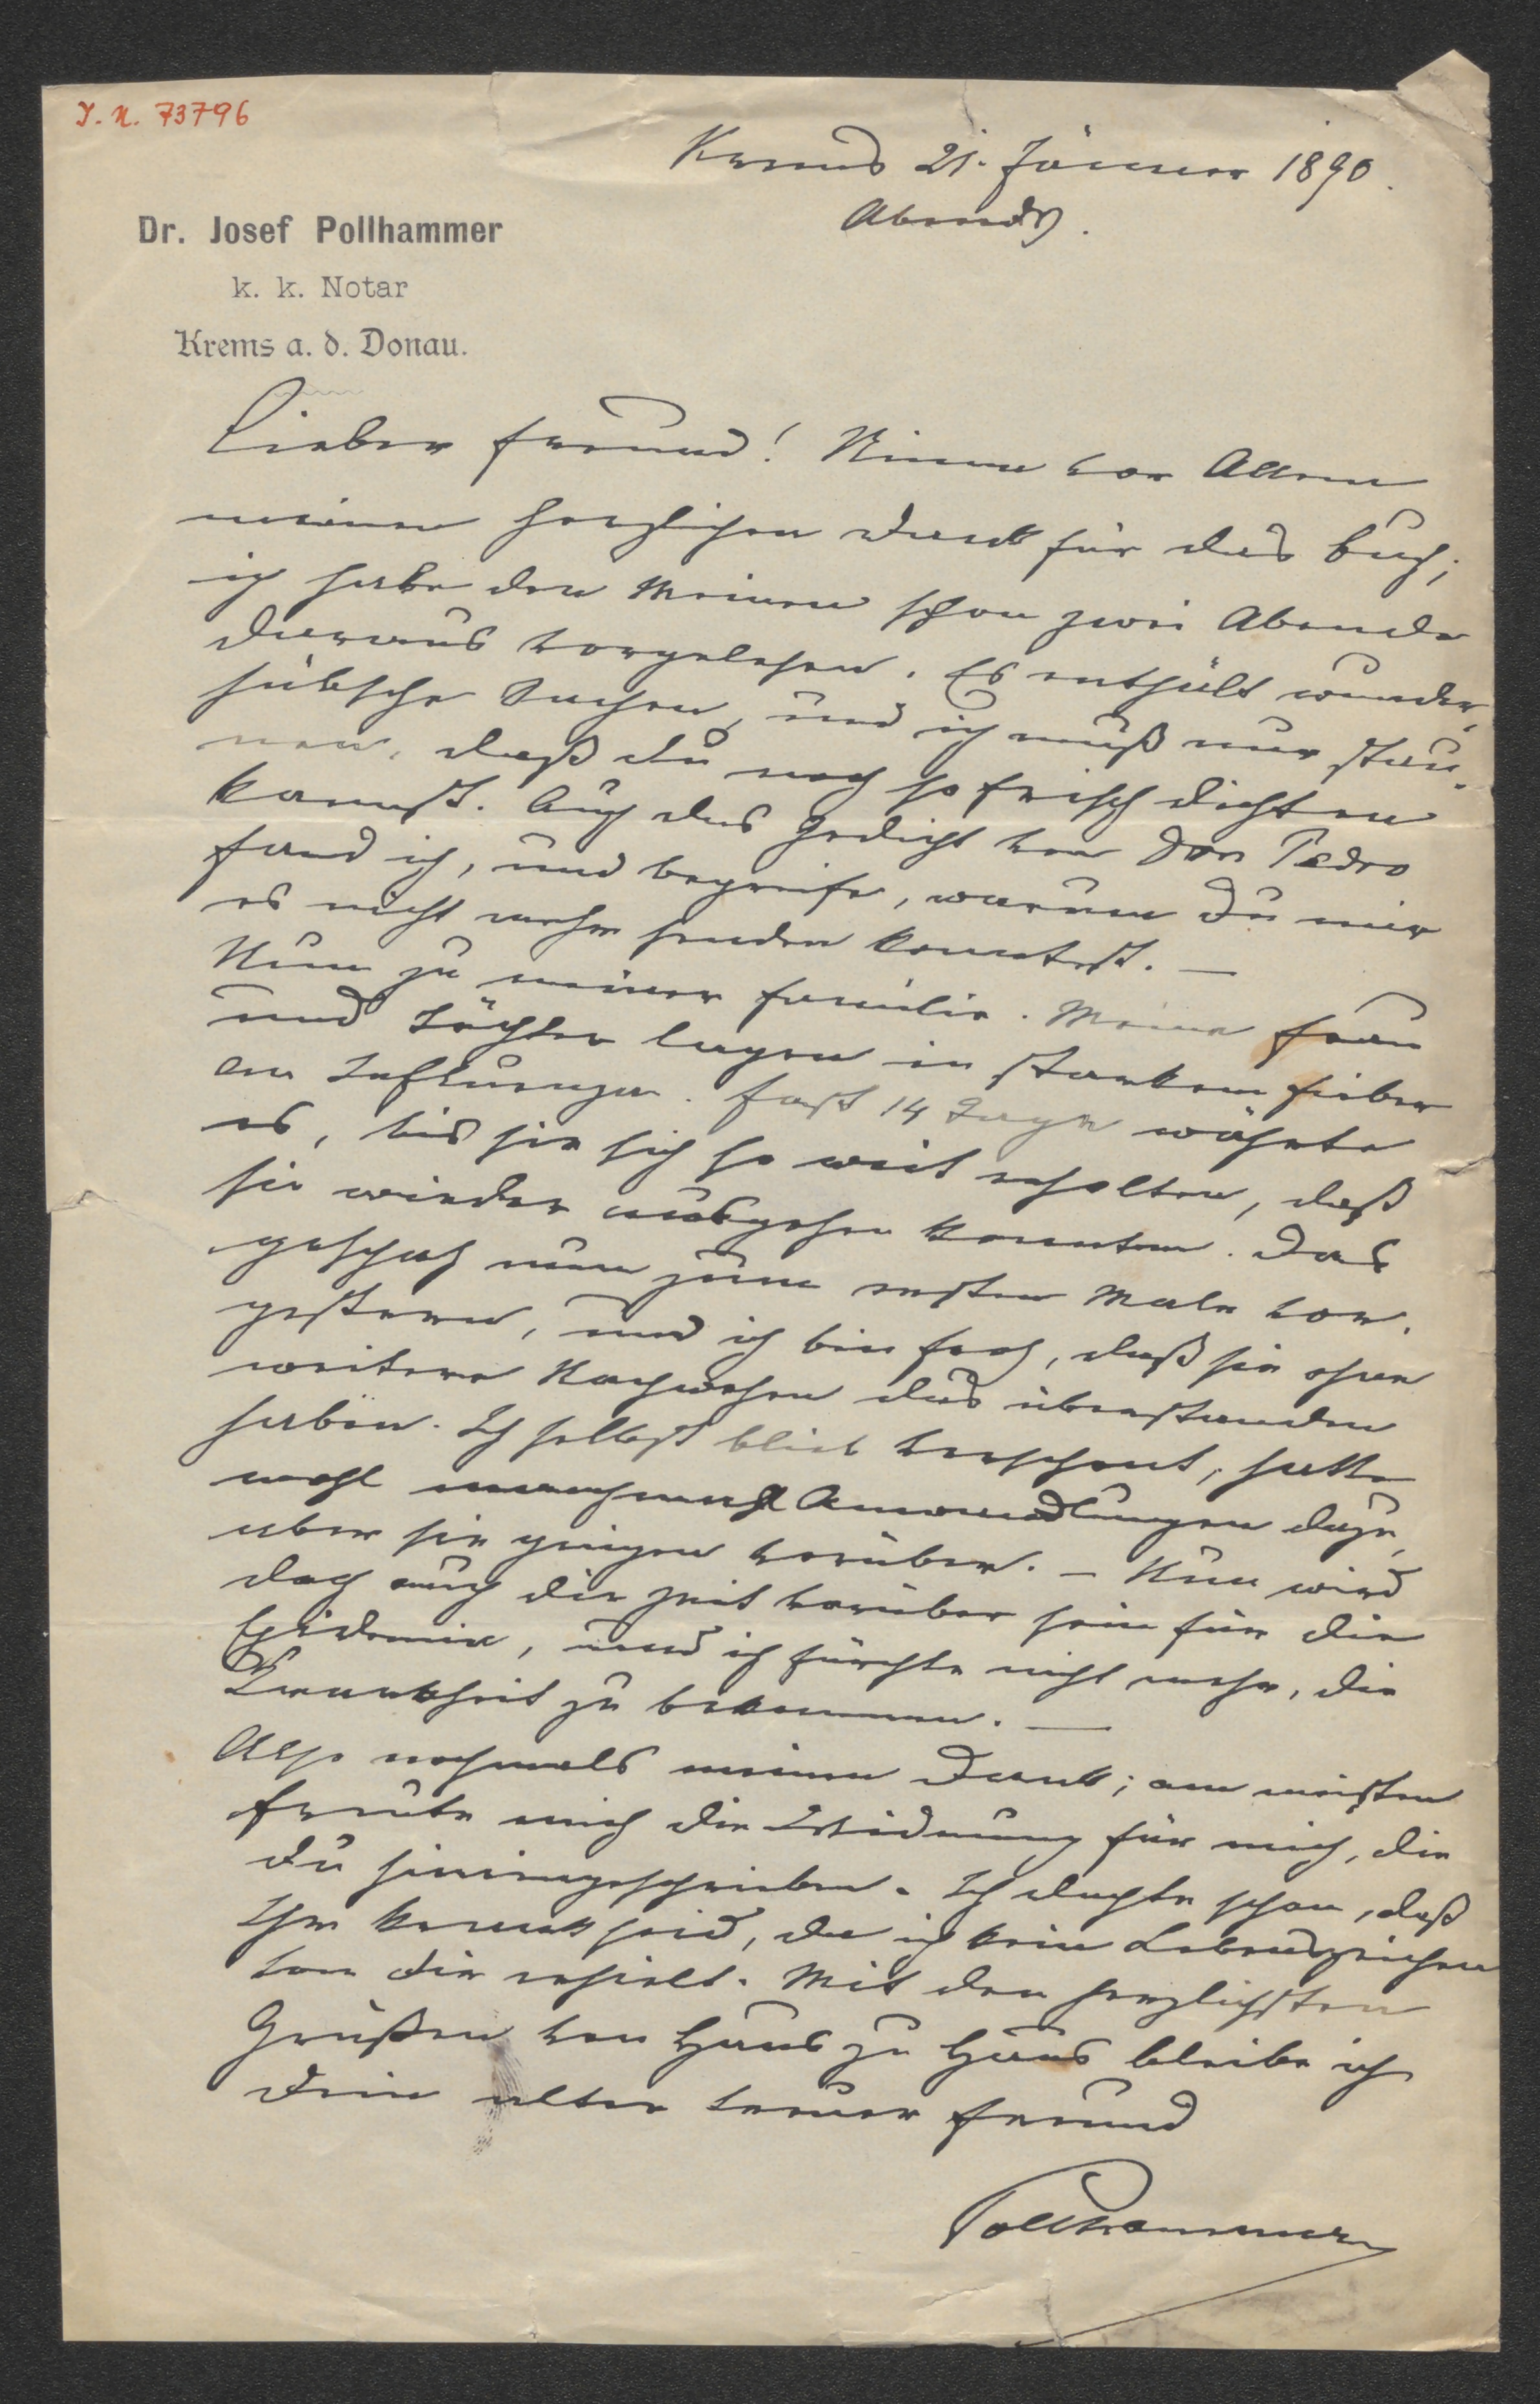 I. N. 73796
Krems 21. Jänner 1890.
Abends.
Dr. Josef Pollhammer
k. k. Notar
Krems a. d. Donau.
Lieber Freund! Nimm vor Allem
meinen herzlichen Dank für das Buch;
ich habe den Meinen schon zwei Abende
daraus vorgelesen. Es enthält wunder-
hübsche Sachen, und ich muß nur stau-
nen, daß du noch so frisch dichten
kannst. Auch das Gedicht von Don Pedro
fand ich, und begreife, warum Du mir
es nicht mehr senden konntest. —
Nun zu meiner Familie. Meine Frau
und Töchter lagen in starkem Fieber
an Influenza. Fast 14 Tage währte
es, bis sie sich so weit erholten, daß
sie wieder ausgehen konnten. Das
geschah nun zum ersten Male vor-
gestern, und ich bin froh, daß sie ohne
weitere Nachwehen das überstanden
haben. Ich selbst blieb verschont, hatte
wohl manchmal Anwandlungen dazu,
aber sie gingen vorüber. – Nun wird
doch auch die Zeit vorüber sein für die
Epidemie, und ich fürchte nicht mehr, die
Krankheit zu bekommen. —
Also nochmals meinen Dank; am meisten
freute mich die Widmung für mich, die
du hineingeschrieben. Ich dachte schon, daß
Ihr krank seid, da ich kein Lebenszeichen
von dir erhielt. Mit den herzlichsten
Grüßen von Haus zu Haus bleibe ich
Dein alter treuer Freund
Pollhammer